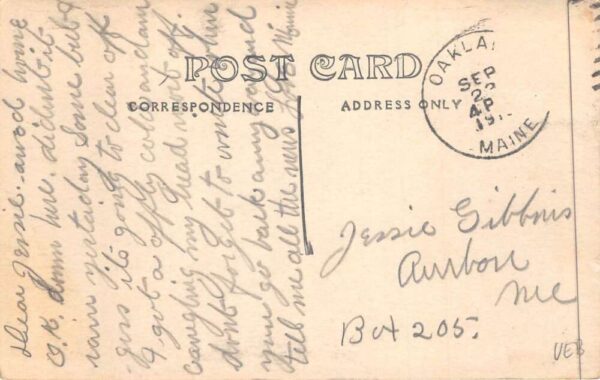 POST CARD
CORRESPONDENCE
ADDRESS ONLY
OAKLA
SEP
4P
191
MAINE
Dear Jessie. arived home
O.K. down here. didunt it
rain yestaday Some but I
gess its going to clear off
I got a offly cold and am
caughing my head most off.
dont forget to write when
you go back amy and
tell me all the news
Jessie Gibbins
Aurbon
Me
Box 205.
VEB